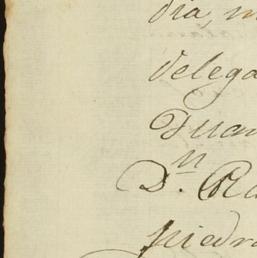 dia, m
delega
Juan
D.n Ra
piedra